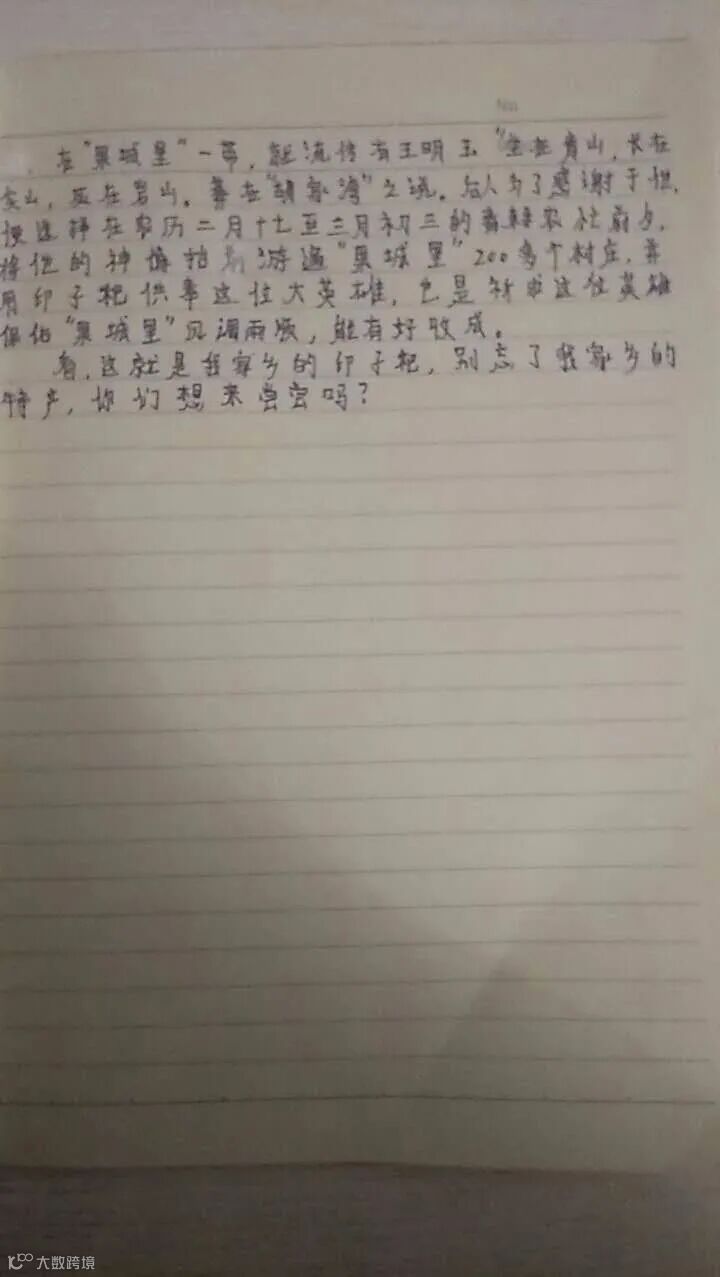 在"果城里"一带,就流传有王明玉"坐在青山,长在
尖山,死在岩山。葬在"胡家湾"之说。后人为了感谢于他,
便选择在农历二月十七至三月初三的春耕农忙前夕,
将他的神像抬 游遍"果城里"200多个村庄,并
用印子粑供奉这位大英雄,也是祈求这位英雄
保佑"果城里"风调雨顺,能有好收成。
看,这就是我家乡的印子粑,别忘了我家乡的
特产,你们想来尝尝吗?
No.
大数跨境